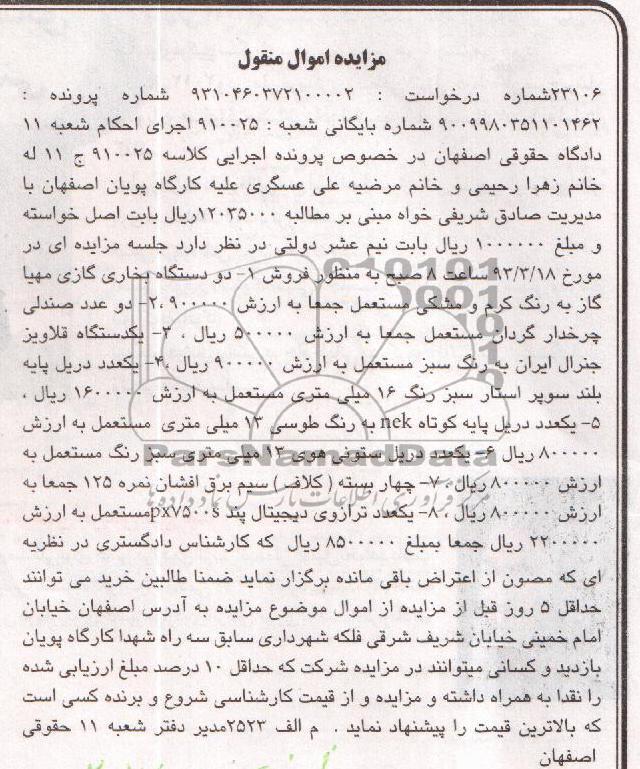 مزایده اموال منقول
۲۳۱۰۶شماره درخواست : ۹۳۱۰۴۶۰۳۷۲۱۰۰۰۰۲ شماره پرونده :
۹۰۰۹۹۸۰۳۵۱۱۰۱۴۶۲ شماره بایگانی شعبه : ۹۱۰۰۲۵ اجرای احکام شعبه ۱۱
دادگاه حقوقی اصفهان در خصوص پرونده اجرایی کلاسه ۹۱۰۰۲۵ ج ۱۱ له
خانم زهرا رحیمی و خانم مرضیه علی عسگری علیه کارگاه پویان اصفهان با
مدیریت صادق شریفی خواه مبنی بر مطالبه ۱۲۰۳۵۰۰۰ریال بابت اصل خواسته
و مبلغ ۱۰۰۰۰۰۰ ریال بابت نیم عشر دولتی در نظر دارد جلسه مزایده ای در
مورخ ۹۳/۳/۱۸ ساعت ۸ صبح به منظور فروش ۱- دو دستگاه بخاری گازی مهیا
گاز به رنگ کرم و مشکی مستعمل جمعا به ارزش ۹۰۰۰۰۰ ،۲- دو عدد صندلی
چرخدار گردان مستعمل جمعا به ارزش ۵۰۰۰۰۰ ریال ، ۳- یکدستگاه قلاویز
جنرال ایران به رنگ سبز مستعمل به ارزش ۹۰۰۰۰۰ ریال ،۴- یکعدد دریل پایه
بلند سوپر استار سبز رنگ ۱۶ میلی متری مستعمل به ارزش ۱۶۰۰۰۰۰ ریال ،
۵- یکعدد دریل پایه کوتاه nek به رنگ طوسی ۱۳ میلی متری مستعمل به ارزش
۸۰۰۰۰۰ ریال ۶- یکعدد دریل ستونی هوی ۱۳ میلی متری سبز رنگ مستعمل به
ارزش ۸۰۰۰۰۰ ریال ،۷- چهار بسته ( کلاف ) سیم برق افشان نمره ۱۲۵ جمعا به
ارزش ۸۰۰۰۰۰ ریال ،۸- یکعدد ترازوی دیجیتال پند px۷۵۰۰s مستعمل به ارزش
۲۲۰۰۰۰۰ ریال جمعا بمبلغ ۸۵۰۰۰۰۰ ریال که کارشناس دادگستری در نظریه
ای که مصون از اعتراض باقی مانده برگزار نماید ضمنا طالبین خرید می توانند
حداقل ۵ روز قبل از مزایده از اموال موضوع مزایده به آدرس اصفهان خیابان
امام خمینی خیابان شریف شرقی فلکه شهرداری سابق سه راه شهدا کارگاه پویان
بازدید و کسانی میتوانند در مزایده شرکت که حداقل ۱۰ درصد مبلغ ارزیابی شده
را نقدا به همراه داشته و مزایده و از قیمت کارشناسی شروع و برنده کسی است
که بالاترین قیمت را پیشنهاد نماید . م الف ۲۵۲۳مدیر دفتر شعبه ۱۱ حقوقی
اصفهان
ParsNamadData